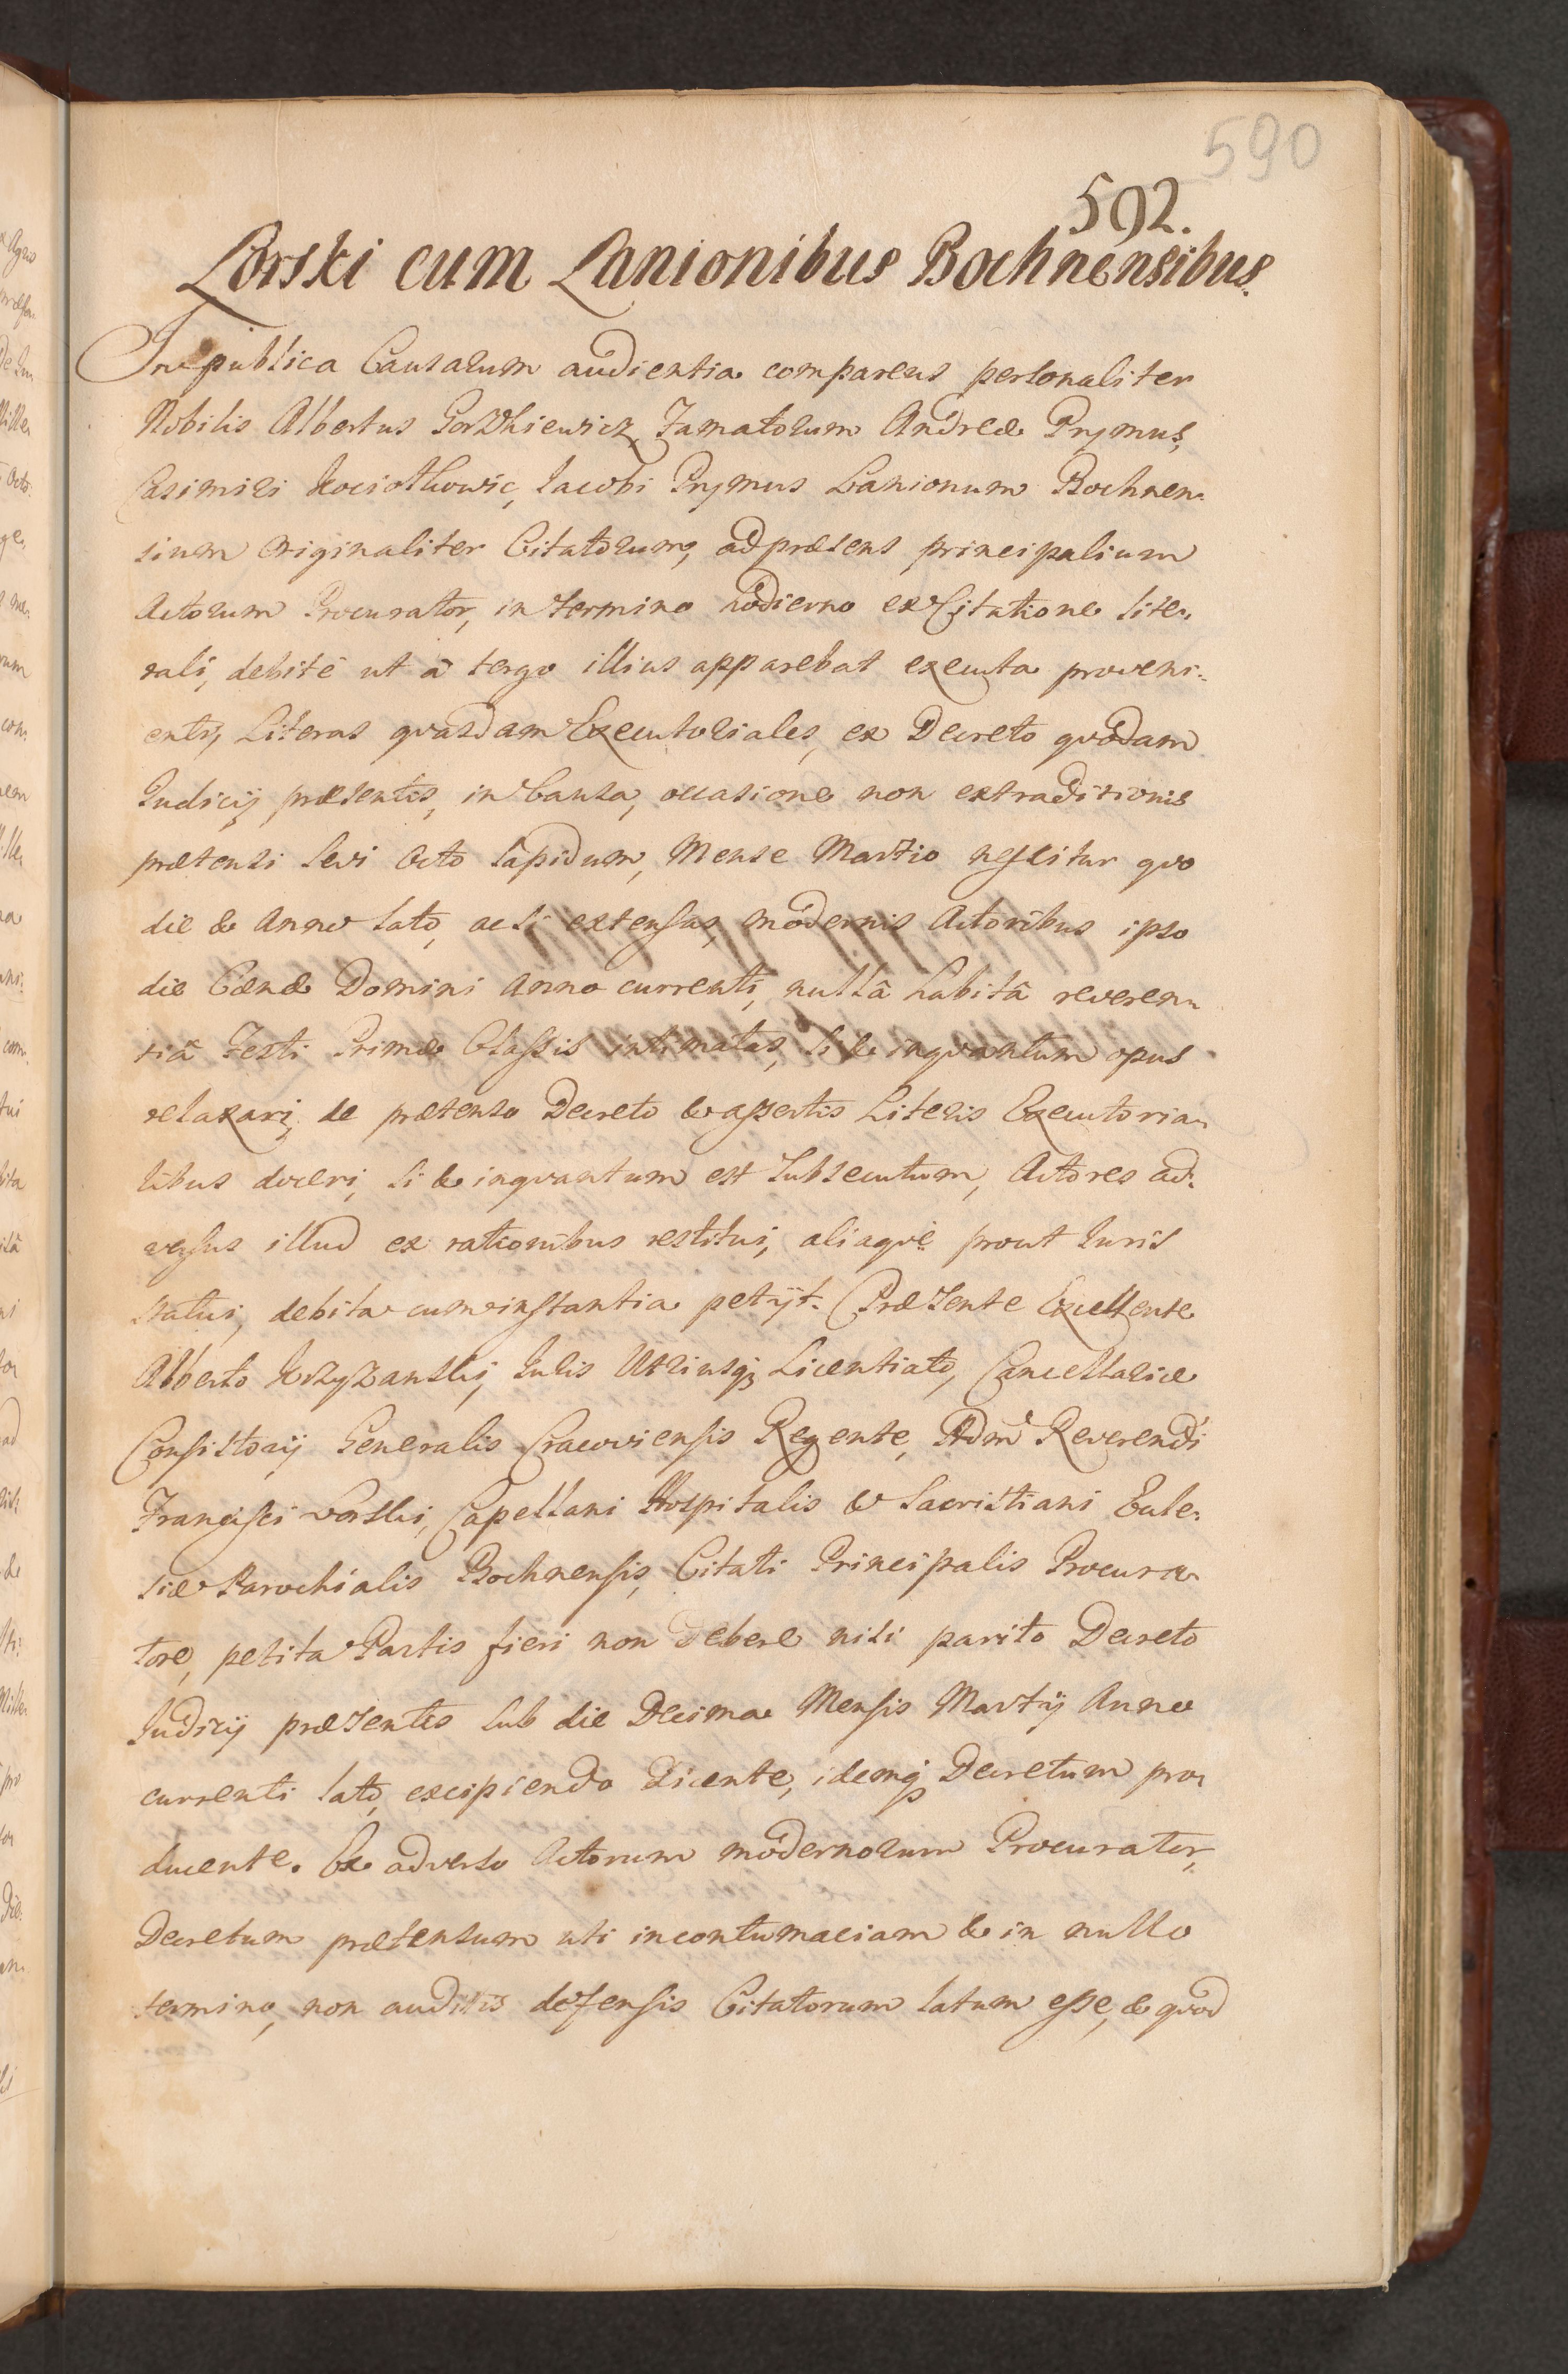 590
592.
Lorski cum Lanionibus Bochnensibus.
In publica Causarum audientia comparens personaliter
Nobilis Albertus Gorzkiewicz, Famatorum Andreæ Prymus,
Casimiri Kociołkowic, Iacobi Prymus Lanionum Bochnen-
sium Originaliter Citatorum, ad præsens principalium
Actorum Procurator, in termino hodierno ex Citatione lite-
rali, debitè ut à tergo illius apparebat executa proveni-
enti, Literas quasdam Executoriales, ex Decreto quodam
Iudicij præsentis, in Causa, occasione non extraditionis
prætensi sevi Octo lapidum, Mense Martio nescitur quo
die & Anno lato, ac si extensas, modernis Actoribus ipso
die Cænæ Domini Anno currenti, nullâ habitâ reveren-
tiâ Festi Primæ Classis intimatas, si & inquantum opus
relaxari, de prætenso Decreto & assertis Literis Executoria-
libus doceri, si & inquantum est subsecutum, Actores ad-
versus illud ex rationibus restitui, aliaquè prout Iuris
statui, debita cum instantia petijt. Præsente Excellente
Alberto Krzyżanski, Iuris Utriusq; Licentiato, Cancellariæ
Consistorij Generalis Cracoviensis Regente, Adm Reverendi
Francisci Lorski, Capellani Hospitalis & Sacristiani Eccle-
siæ Parochialis Bochnensis, Citati Principalis Procura-
tore, petita Partis fieri non debere nisi parito Decreto
Iudicij præsentis sub die Decima Mensis Martij Anno
currenti lato, excipiendo dicente, idemq; Decretum pro-
ducente. Ex adverso Actorum modernorum Procurator,
Decretum prætensum uti in contumaciam & in nullo
termino, non auditis defensis Citatorum latum esse, & quod